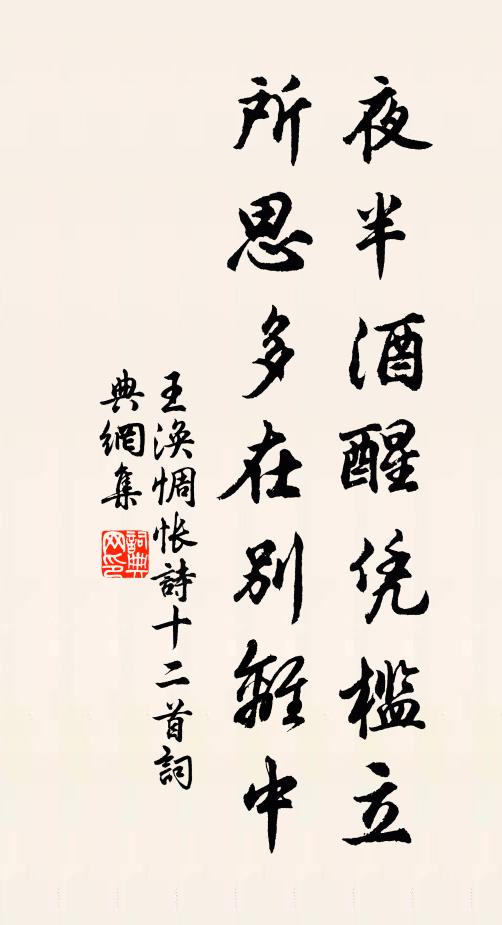 夜半酒醒凭槛立
所思多在别離中
王涣惆怅詩十二首詞
典網集
詞典
网印